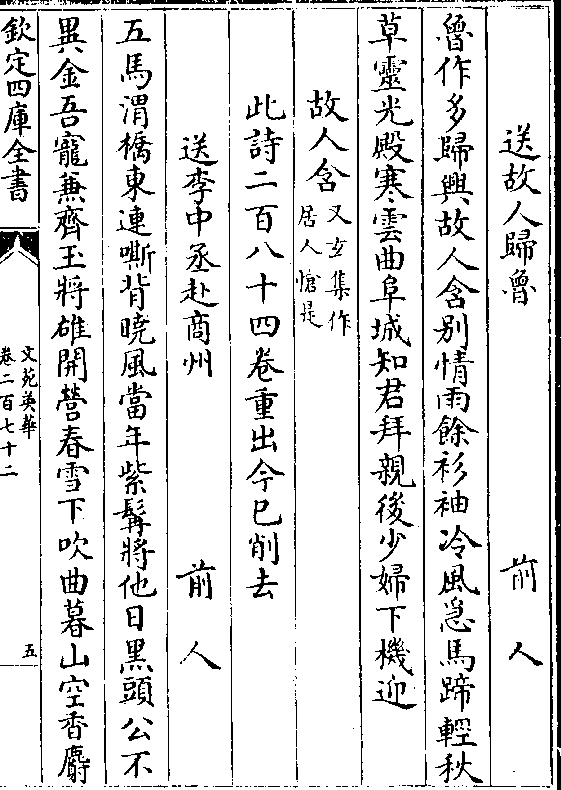 送故人歸魯 前人
魯作多歸興故人含別情雨餘衫袖冷風急馬蹄輕秋
草靈光殿寒雲曲阜城知君拜親後少婦下機迎
故人含又玄集作居人愴是
此詩二百八十四卷重出今已削去
送李中丞赴商州 前人
五馬渭橋東連嘶背曉風當年紫髯將他日黑頭公不
異金吾寵兼齊玉將雄開營春雪下吹曲暮山空香麝
欽定四庫全書
文苑英華
卷二百七十二
五